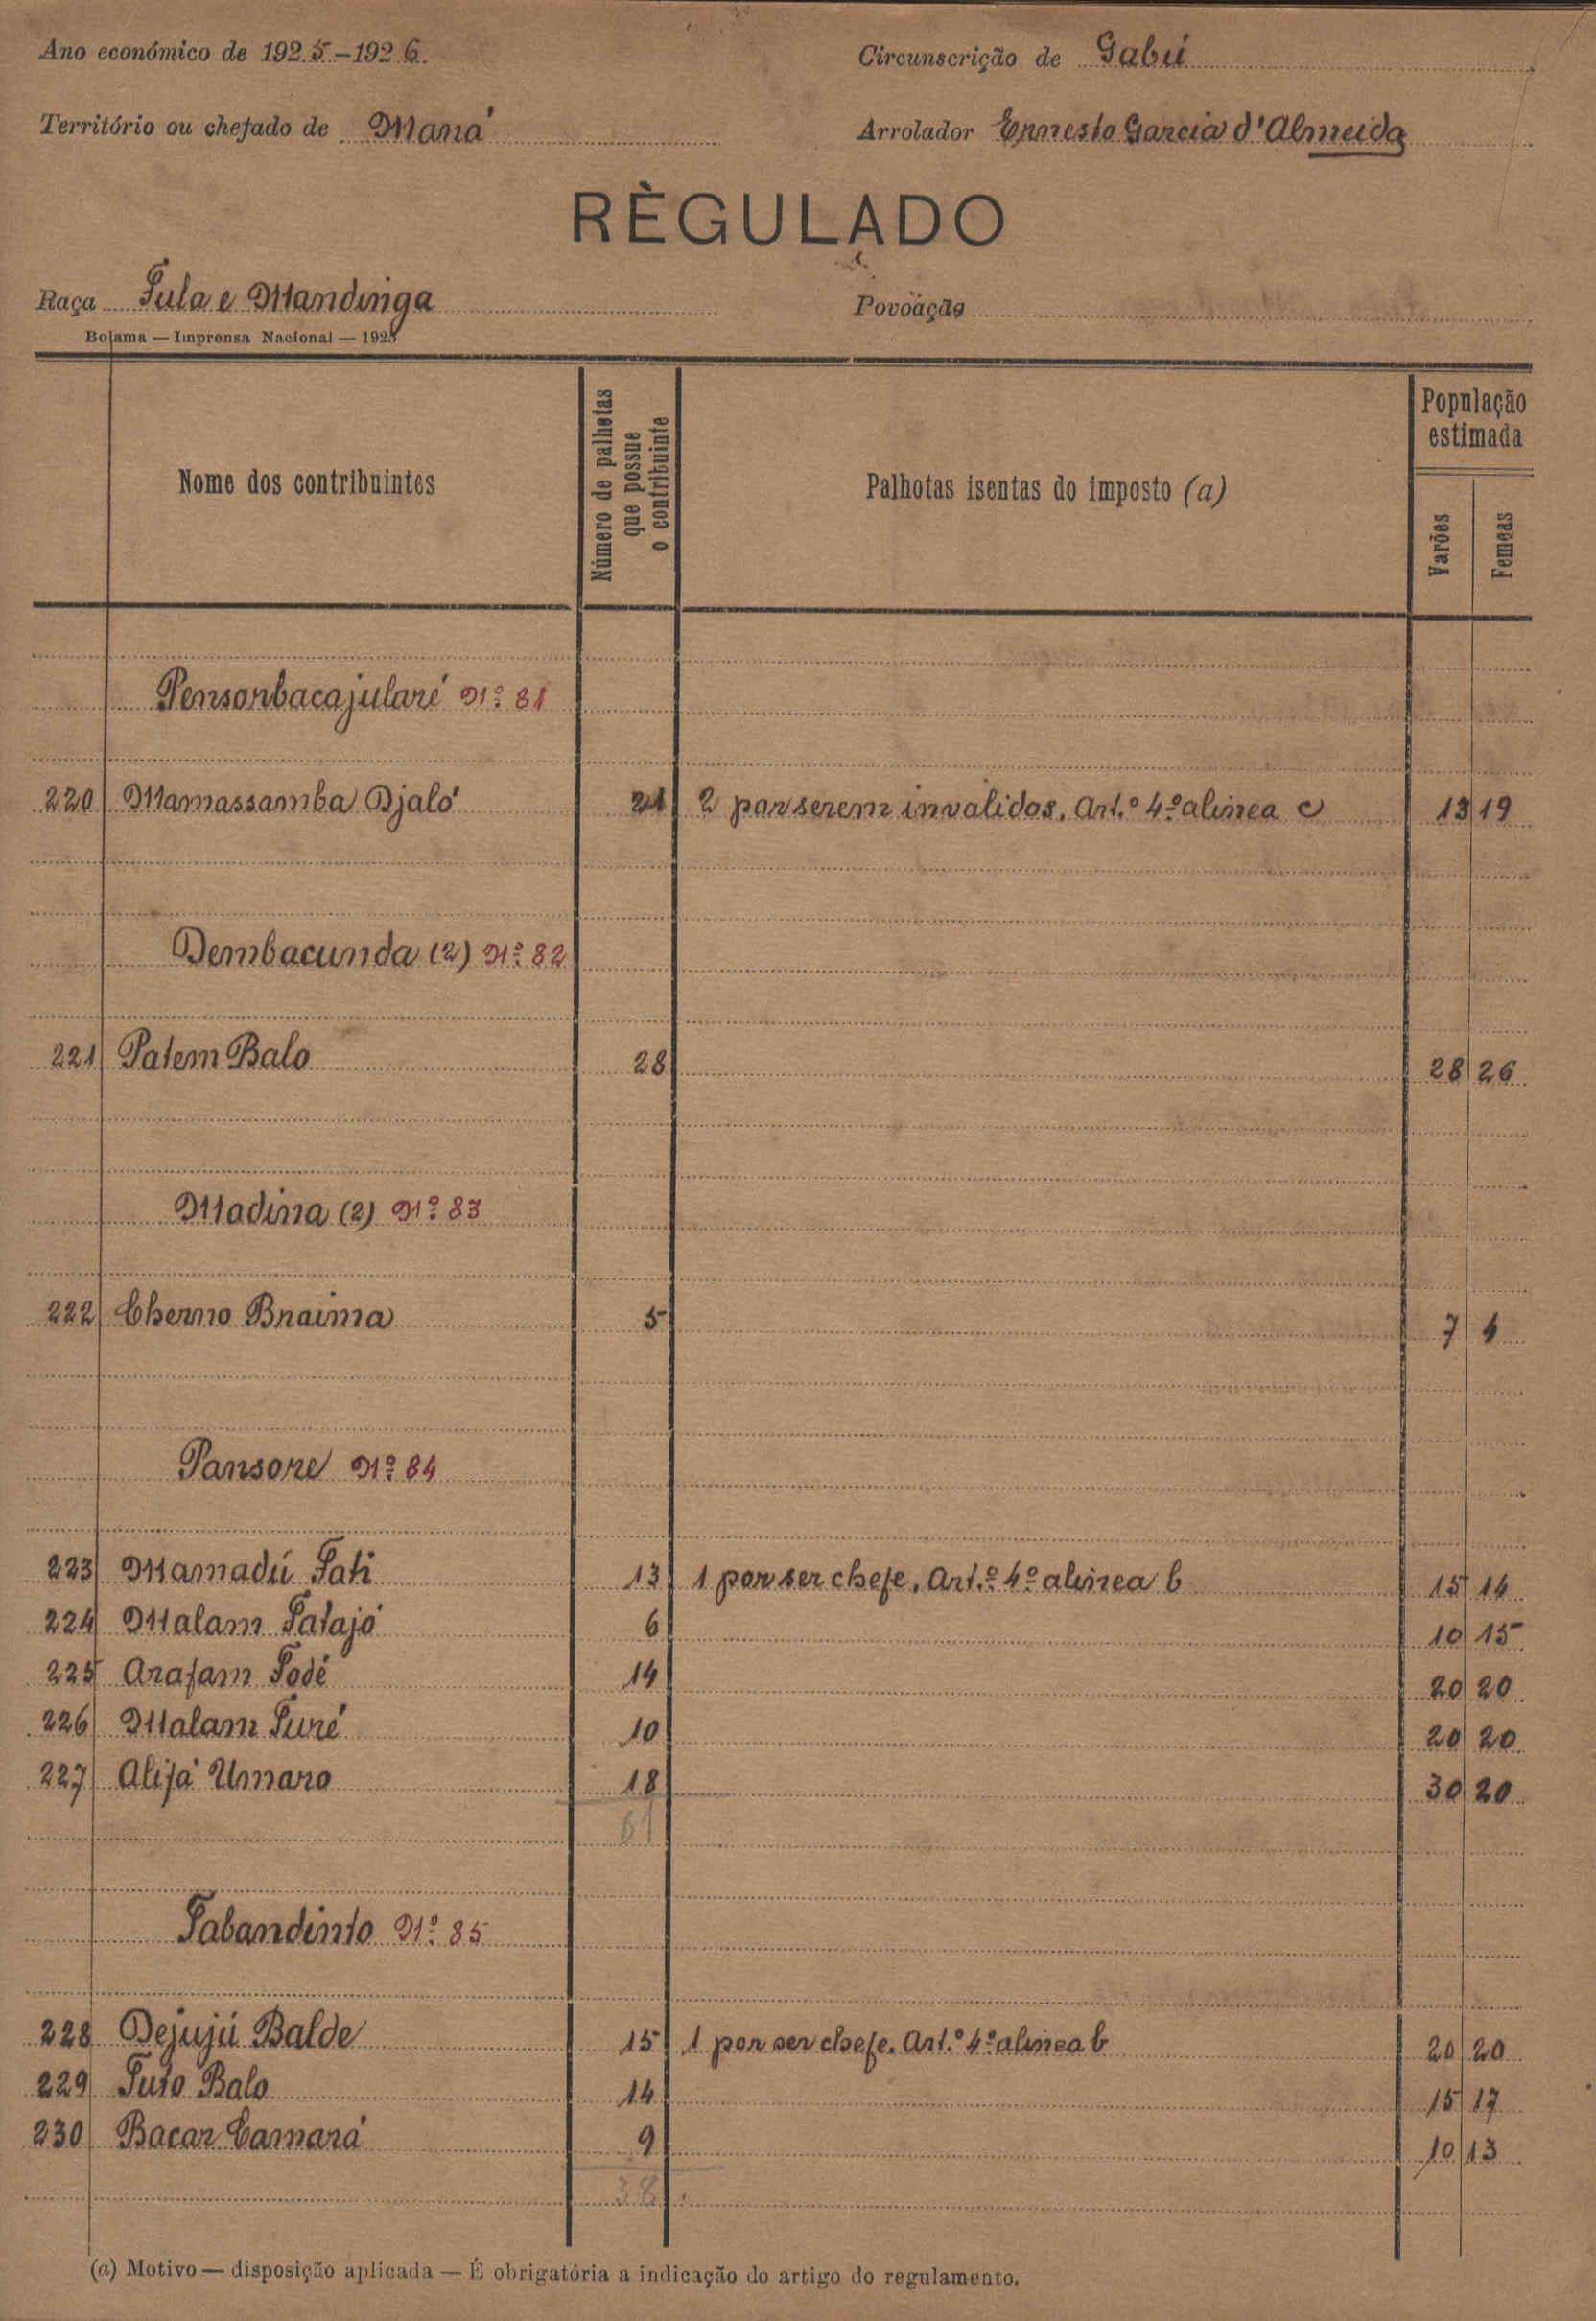 Ano económico de 1925-1926.
Circunscrição de Gabú
Território ou chefado de Maná
Arrolador Ernesto Garcia d'Almeida
RÈGULADO
Raça Fula e Mandinga
Povoação
Bolama — Imprensa Nacional — 1925
Nome dos contribuintes
Número de palhotas que possue o contribuinte
Palhotas isentas do imposto (a)
População estimada
Varões
Femeas
Pensonbacajularé Nº 81
220 Mamassamba Djaló 21 2 por serem invalidos. Art.º 4º alinea c 13 19
Dembacunda (2) Nº 82
221 Patem Balo 28 28 26
Madina (2) Nº 83
222 Cherno Braima 5 7 4
Pansore Nº 84
223 Mamadú Fati 13 1 por ser chefe. Art.º 4º alinea b 15 14
224 Malam Fatajó 6 10 15
225 Arafam Fodé 14 20 20
226 Malam Turé 10 20 20
227 Alifá Umaro 18 30 20
61
Tabandinto Nº 85
228 Dejujú Balde 15 1 por ser chefe. Art.º 4º alinea b 20 20
229 Tuto Balo 14 15 17
230 Bacar Camará 9 10 13
38
(a) Motivo — disposição aplicada — É obrigatória a indicação do artigo do regulamento.